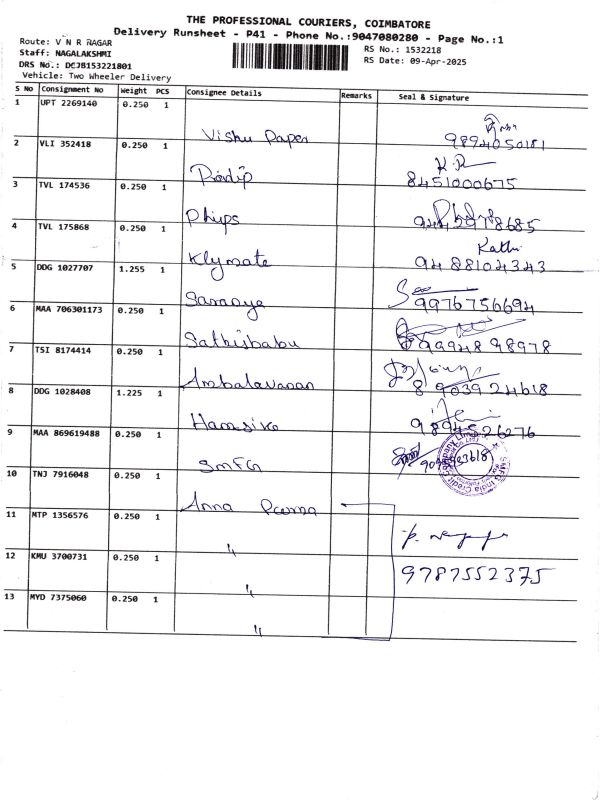 THE PROFESSIONAL COURIERS, COIMBATORE
Delivery Runsheet - P41 - Phone No.:9047080280 - Page No.:1
Route: V N R NAGAR
RS No.: 1532218
Staff: NAGALAKSHMI
RS Date: 09-Apr-2025
DRS No.: DCJB153221801
Vehicle: Two Wheeler Delivery
S No Consignment No Weight PCS Consignee Details Remarks Seal & Signature
1 UPT 2269140 0.250 1
Vishu Paper 9894050181
2 VLI 352418 0.250 1 K.R
Pradip 8451000675
3 TVL 174536 0.250 1
Phips
4 TVL 175868 0.250 1 Kathi
Klymate 9488104343
5 DDG 1027707 1.255 1
Saranya 9976756694
6 MAA 706301173 0.250 1
Sathisbabu 99948 98978
7 TSI 8174414 0.250 1
Ambalavanan 8903924618
8 DDG 1028408 1.225 1
Hansika
9 MAA 869619488 0.250 1
SMFG
SMFG India Credit Company Limited
10 TNJ 7916048 0.250 1
Anna Purna
11 MTP 1356576 0.250 1
"
12 KMU 3700731 0.250 1 9787552375
"
13 MYD 7375060 0.250 1
"